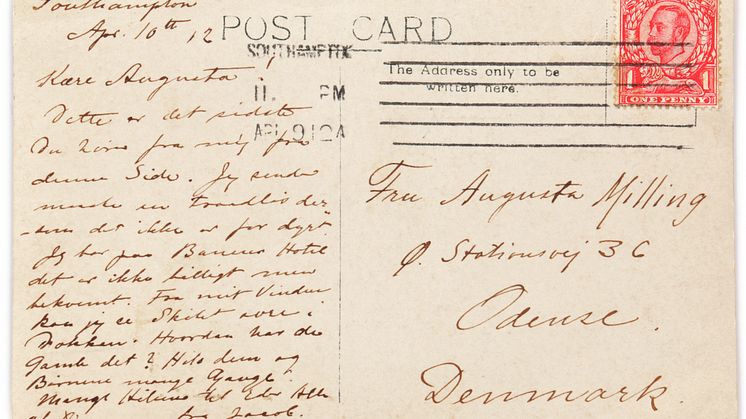 Southampton
Apr. 10th 12
Kære Augusta!
Dette er det sidste
Du hører fra mig fra
denne Side. Jeg sender
maaske en Traadløs der-
som det ikke er for dyrt
Jeg bor paa Hotel
det er ikke billigt men
bekvemt. Fra mit Vindue
kan jeg se Skibet ovre i
Dokken. Hvordan har de
Gamle det? Hils dem og
Børnene mange Gange!
Mange Hilsner til Eder Alle
fra Jacob.
POST CARD
SOUTHAMPTON
11. PM
APL 9 12A
The Address only to be
written here.
1 1
ONE PENNY
Fru Augusta Milling
Ø. Stationsvej 36
Odense.
Denmark.